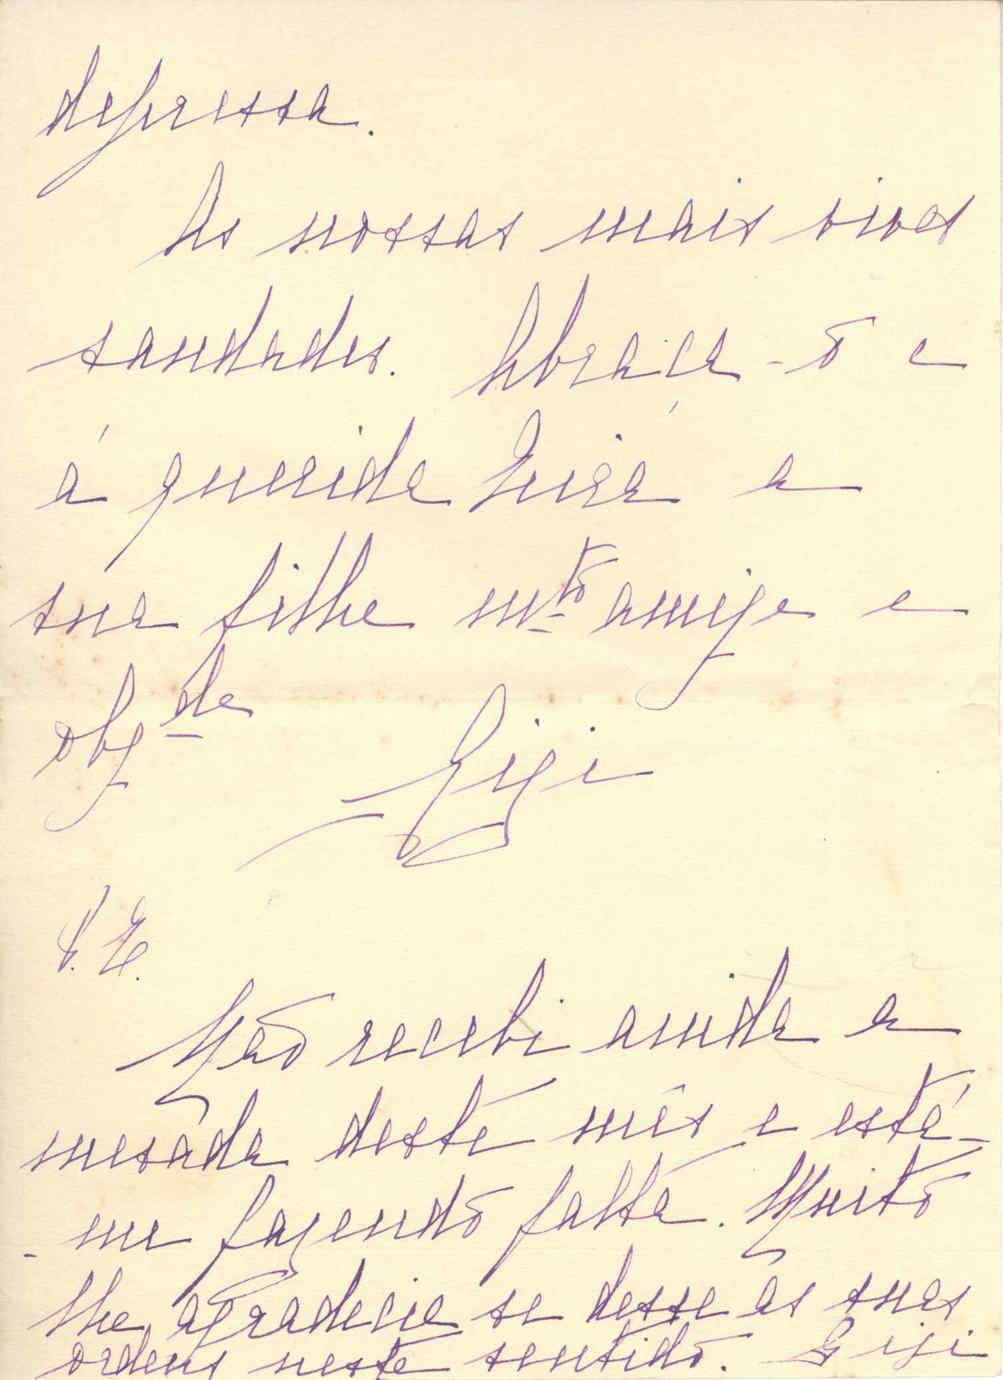 depressa.
As nossas mais vivas
saudades. Abraça-o e
á querida Zuza a
sua filha mto amiga e
obgda
Gigi
P. E.
Não recebi ainda a
mesada deste mês e está-
-me fazendo falta. Muito
lhe agradecia se desse as suas
ordens neste sentido. Gigi